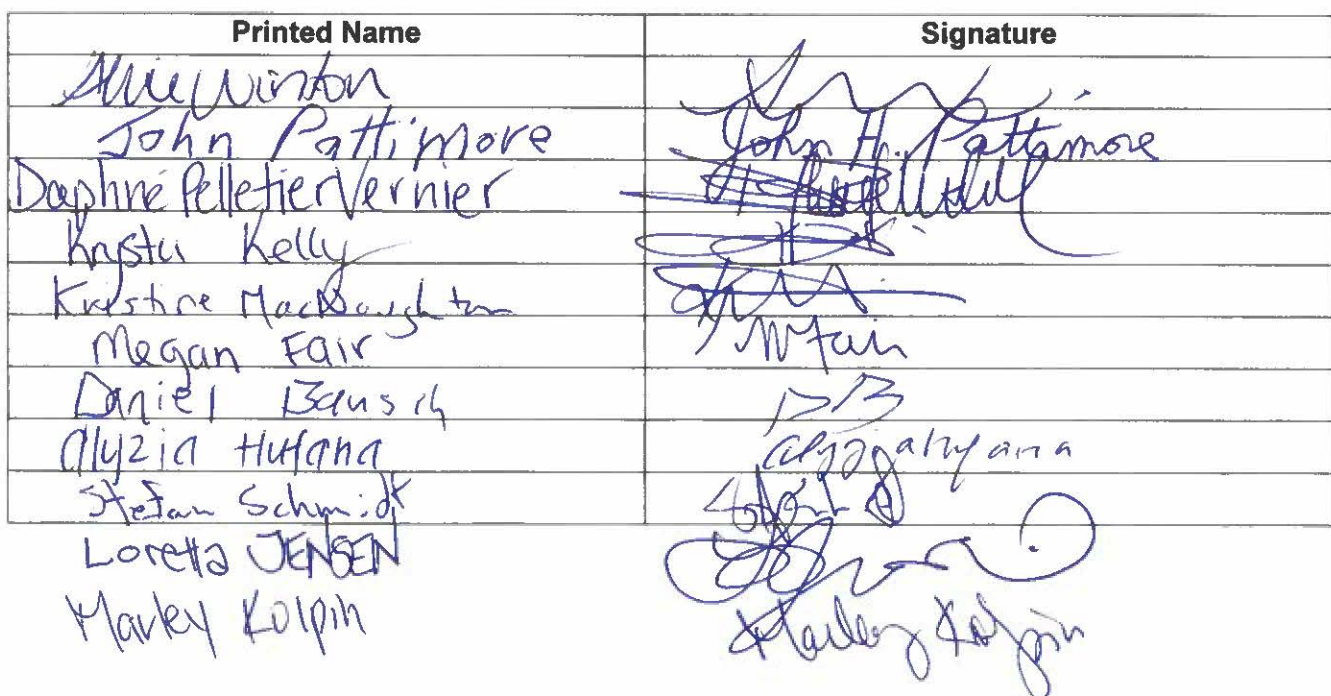 Printed Name Signature
Winston
John Pattimore John H. Pattimore
Daphné Pelletier Vernier
Krysta Kelly
Kristine MacNaughton
Megan Fair MFair
Daniel Bausch DB
Alyzia Hufana
Stefan Schmidt
Loretta JENSEN
Marley Kolpin Marley Kolpin